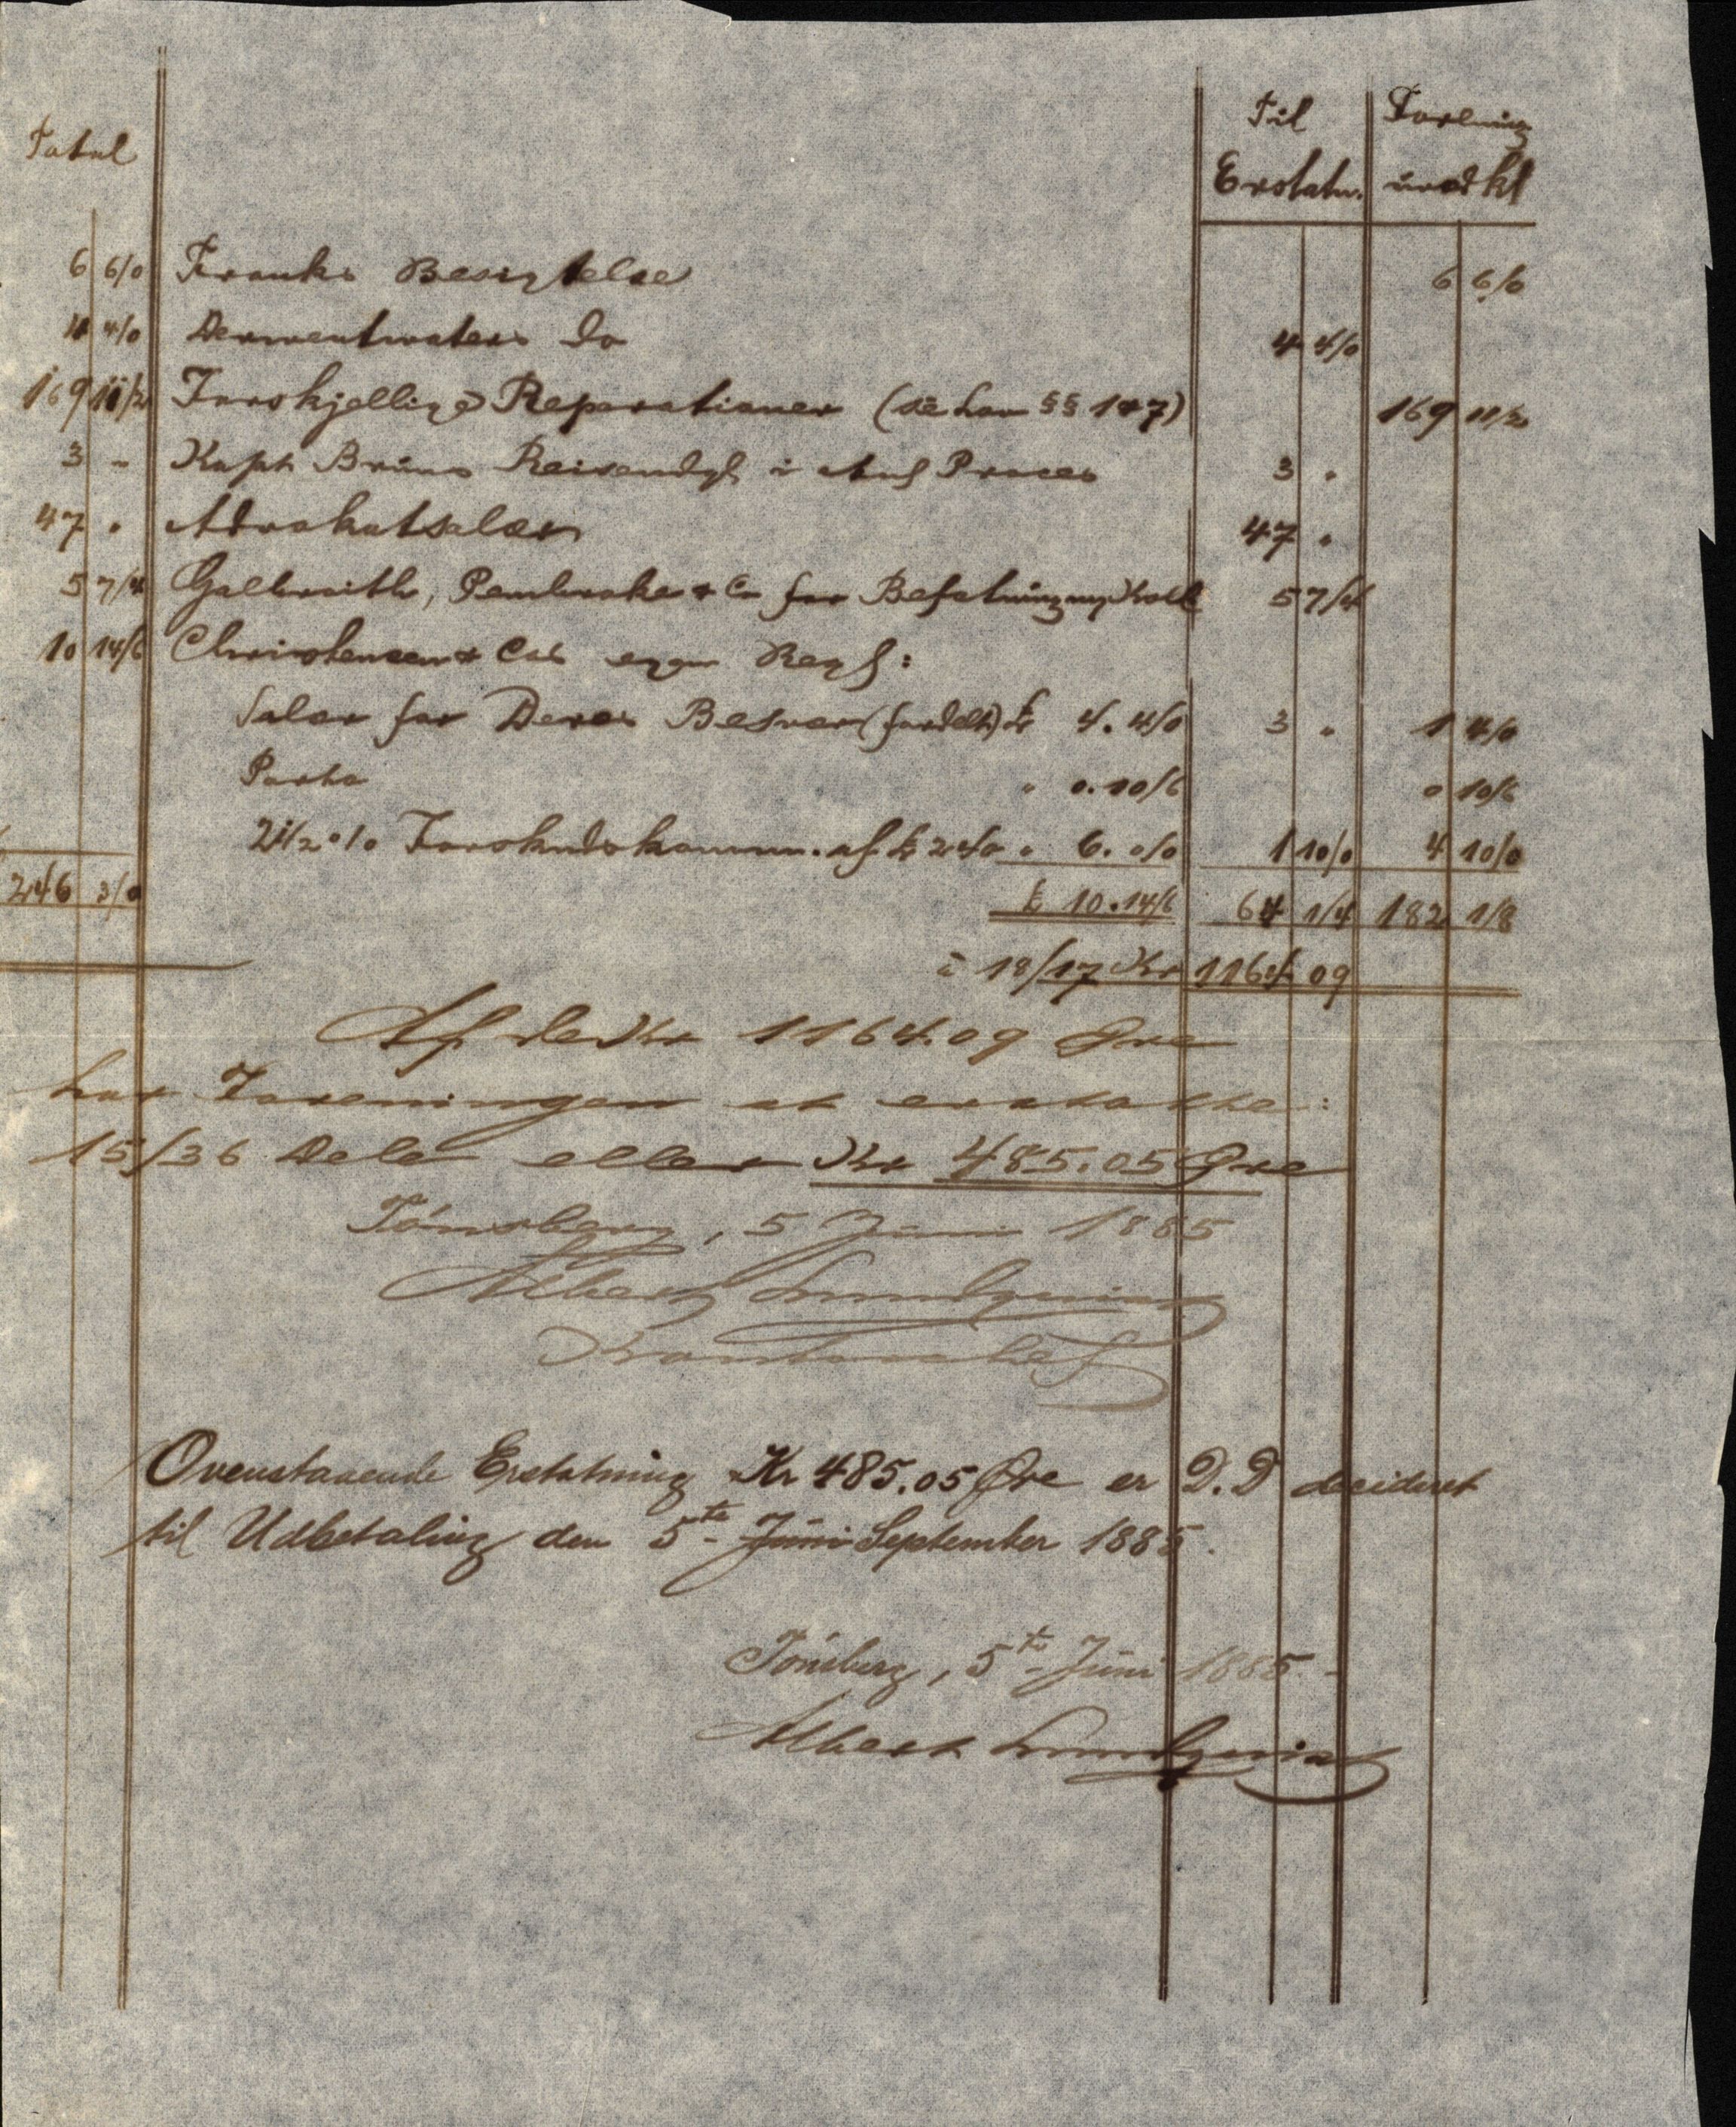 Total
Til Forening
Erstatn. uvedkl
6 6/0 Franks Besigtelse 6 6/0
4 4/0 Derwentwaters Do 4 4/0
169 11/2 Forskjellige Reparationer (se Lov §§ 1 & 7) 169 11/2
3 " Kapt Bruns Reiseudgf i Anl Proces 3 "
47 " Advokatsalær 47 "
5 7/4 Galbraith, Pembroke & Co for Befatning 5 7/4
10 14/6 Christensen & Cos egen Regf:
Salær for Deres Besvær (fordelt) £ 4. 4/0 3 " 1 4/0
Porto " 0. 10/6 0 10/6
2 1/2 % Forskudskomm. af £ 240 " 6. 0/0 1 10/0 4 10/0
246 3/0 £ 10. 14/6 64 1/4 182 1/8
à 18/17 Kr 1164 09
Af de Kr 1164.09 Øre
har Foreningen at erstatte:
15/36 Dele eller Kr 485.05 Øre
Tönsberg, 5 Juni 1885
Albert Lundqvist
Ovenstaaende Erstatning Kr 485.05 Øre er D.D decideret
til Udbetaling den 5te Juni September 1885.
Tönsberg, 5te Juni 1885.
Albert Lundqvist